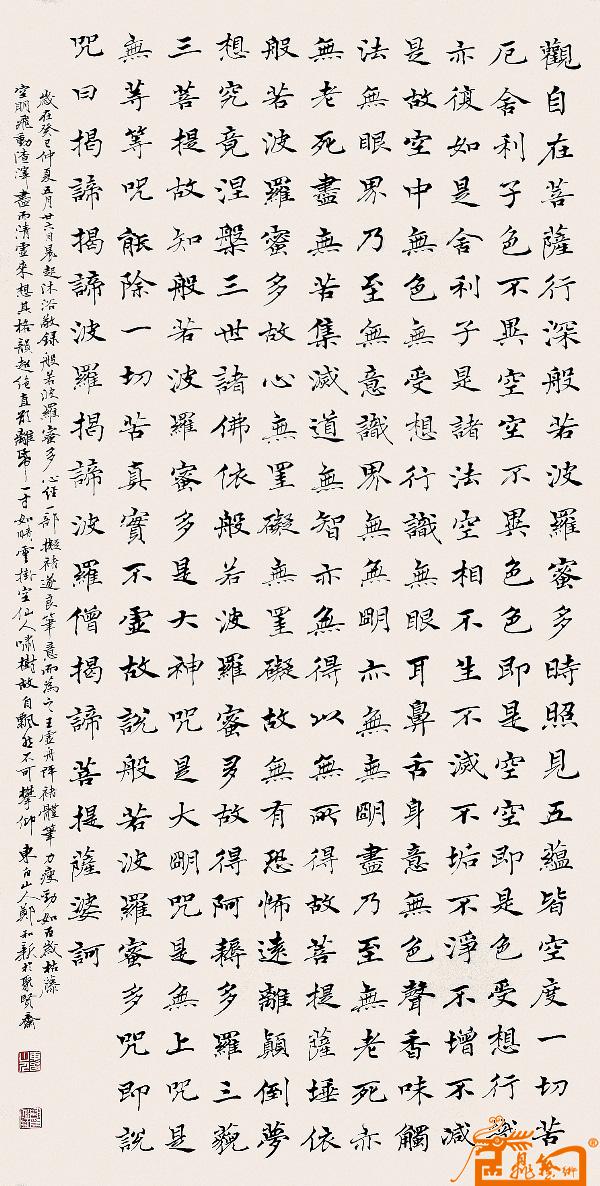 觀自在菩薩行深般若波羅蜜多時照見五蘊皆空度一切苦
厄舍利子色不異空空不異色色即是空空即是色受想行識
亦復如是舍利子是諸法空相不生不滅不垢不淨不增不減
是故空中無色無受想行識無眼耳鼻舌身意無色聲香味觸
法無眼界乃至無意識界無無明亦無無明盡乃至無老死亦
無老死盡無苦集滅道無智亦無得以無所得故菩提薩埵依
般若波羅蜜多故心無罣礙無罣礙故無有恐怖遠離顛倒夢
想究竟涅槃三世諸佛依般若波羅蜜多故得阿耨多羅三藐
三菩提故知般若波羅蜜多是大神咒是大明咒是無上咒是
無等等咒能除一切苦真實不虛故說般若波羅蜜多咒即說
咒曰揭諦揭諦波羅揭諦波羅僧揭諦菩提薩婆訶
歲在癸巳仲夏五月廿六日晨起沐浴敬錄般若波羅蜜多心經一部擬褚遂良筆意而為之王虛舟評褚體筆力瘦勁如百歲枯藤
空明飛動渣滓盡而清虛來想其格韻超絕直欲離紙一寸如晴雲掛空仙人嘯樹故自飄然不可攀仰東白山人鄭和新於聚賢齋